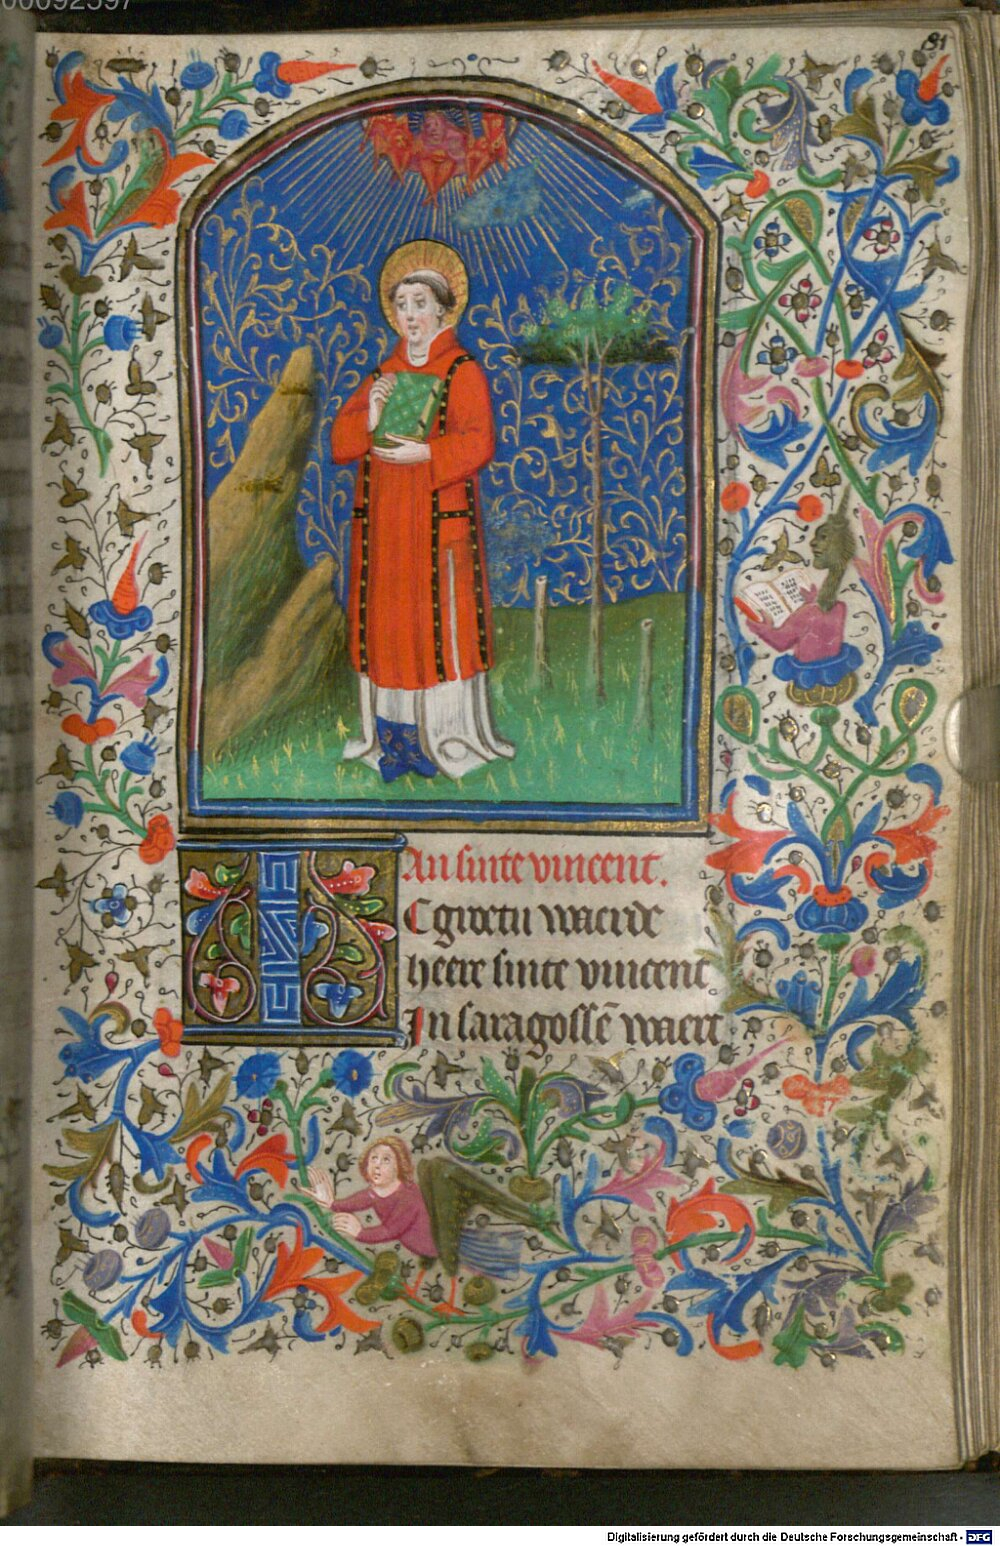 An sinte vincent.
IC groetu waerde
heere sinte vincent
In saragossē waert
Digitalisierung gefördert durch die Deutsche Forschungsgemeinschaft - DFG